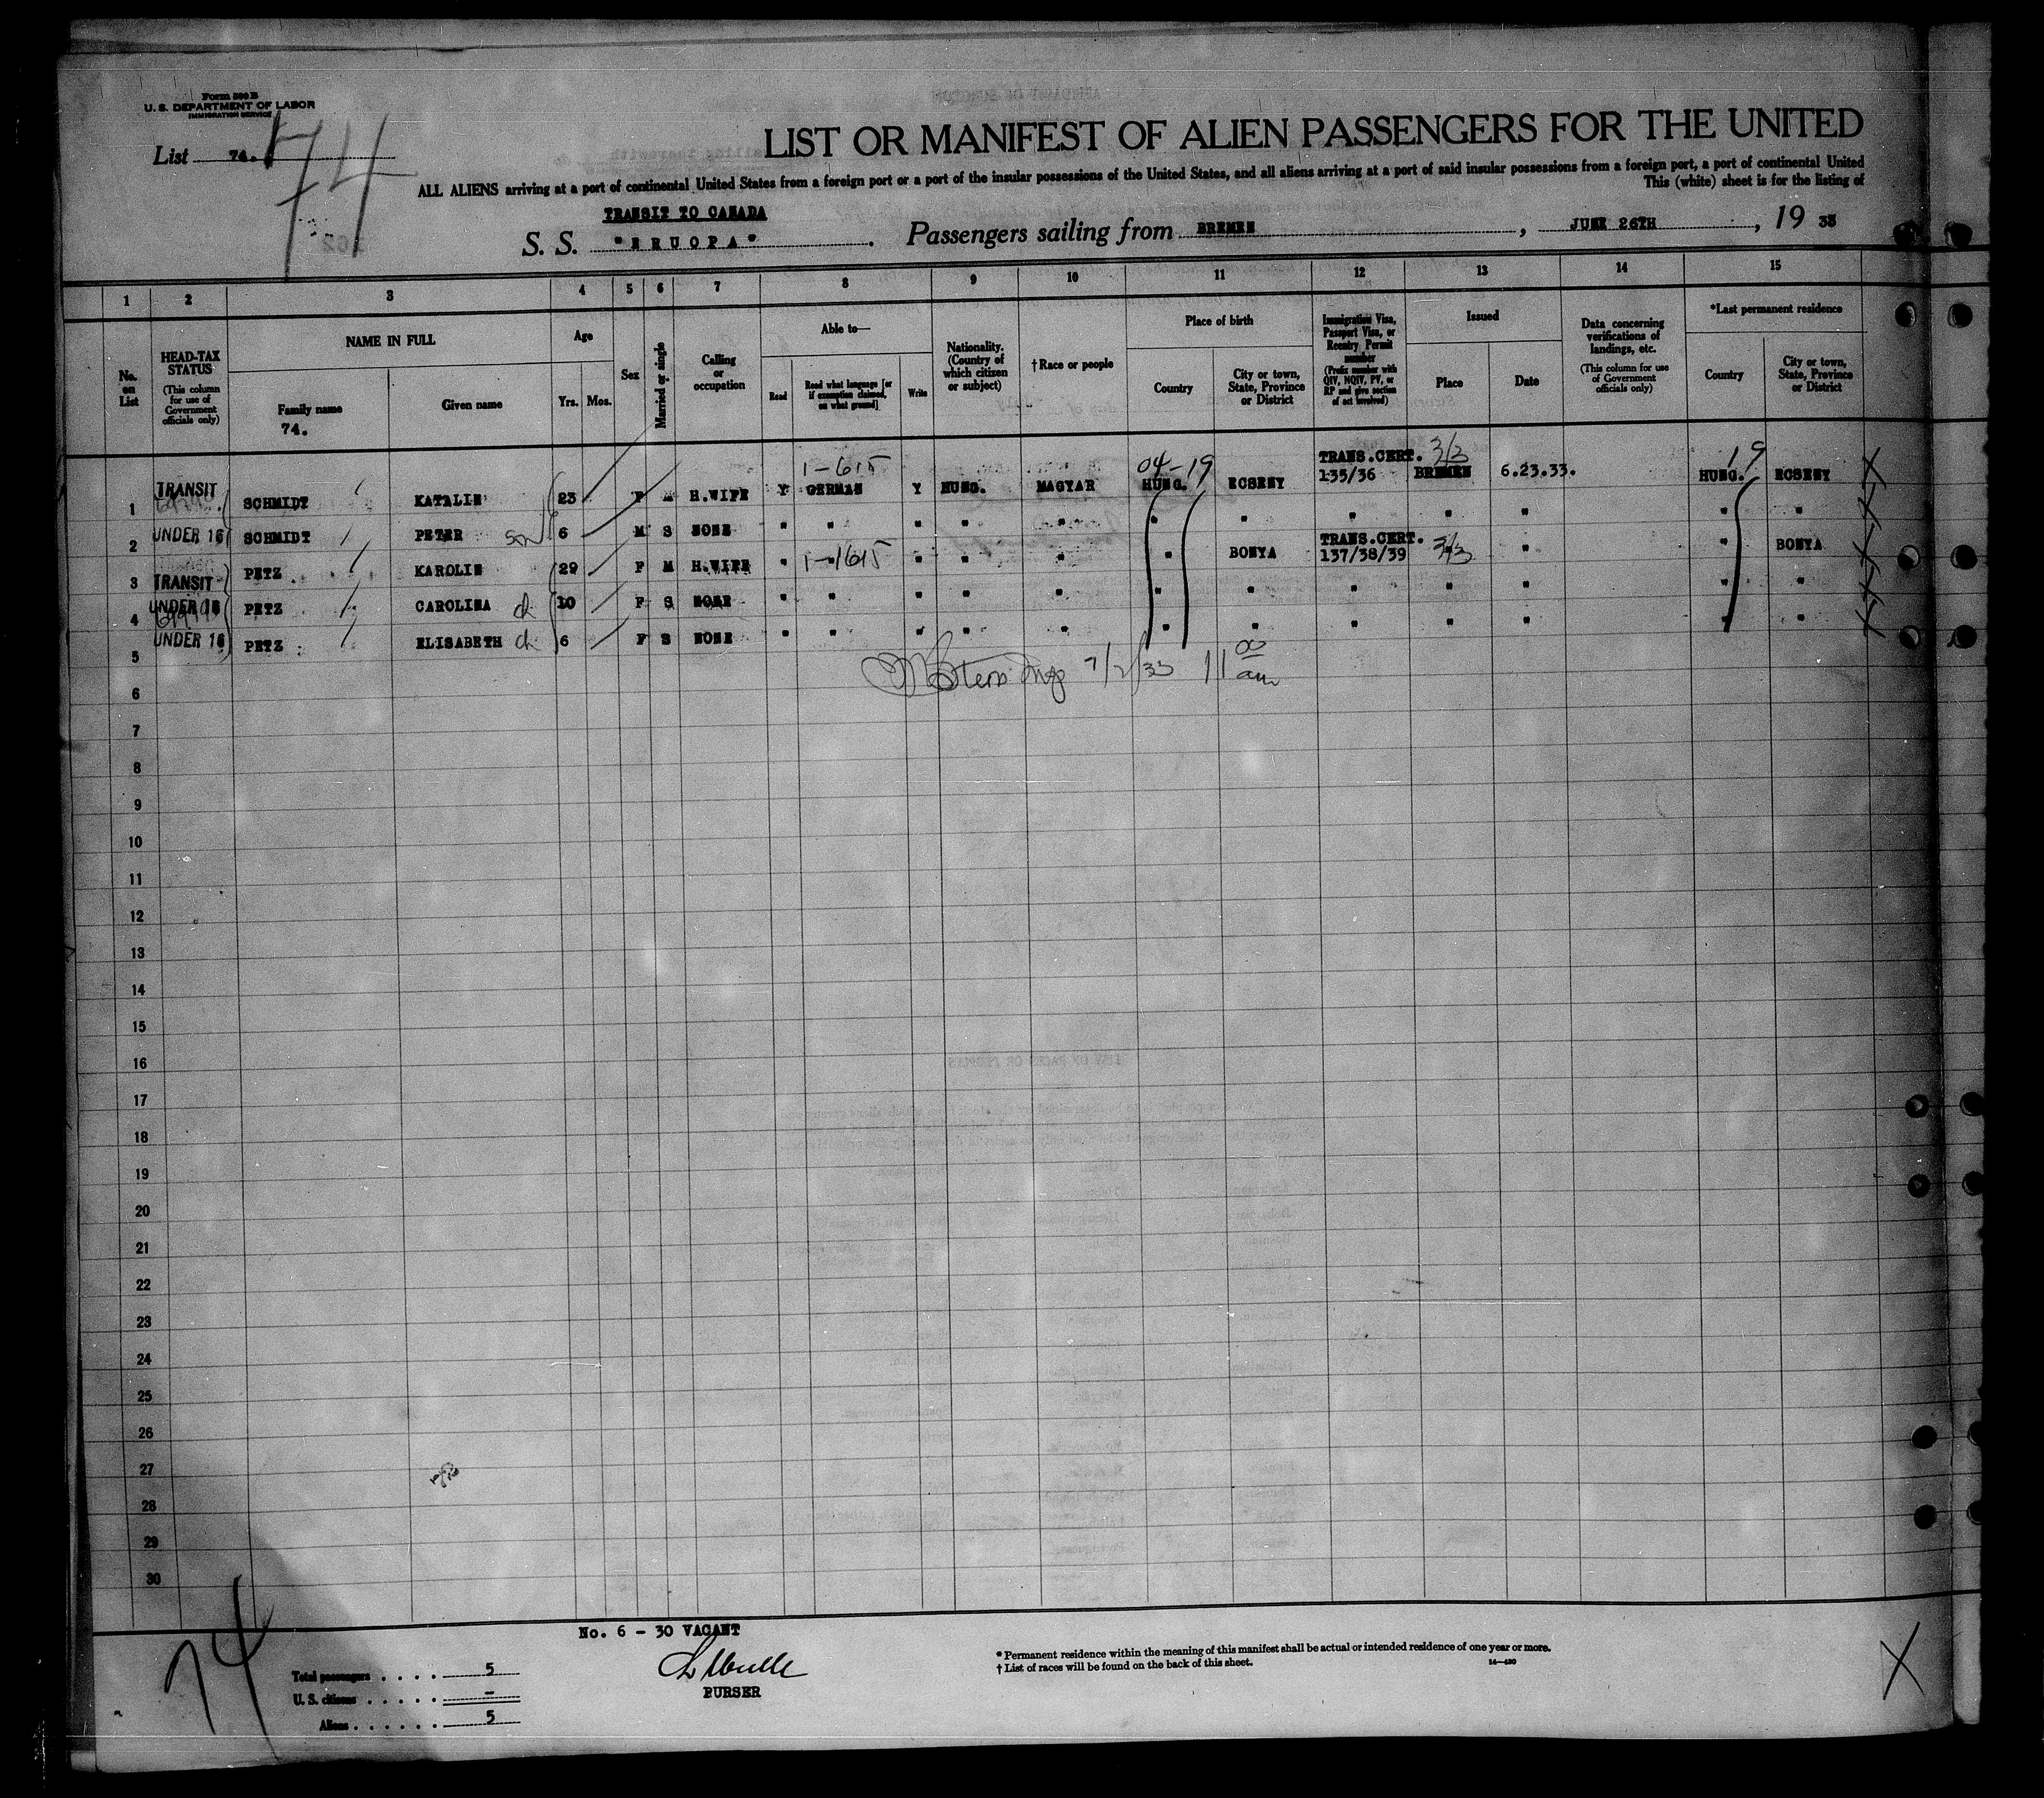 Form 500 B
U. S. DEPARTMENT OF LABOR
IMMIGRATION SERVICE
List 74.
74
LIST OR MANIFEST OF ALIEN PASSENGERS FOR THE UNITED
ALL ALIENS arriving at a port of continental United States from a foreign port or a port of the insular possessions of the United States, and all aliens arriving at a port of said insular possessions from a foreign port, a port of continental United
This (white) sheet is for the listing of
TRANSIT TO CANADA
S. S. "ERUOPA". Passengers sailing from BREMEN, JUNE 26TH, 19 33
1 2 3 4 5 6 7 8 9 10 11 12 13 14 15
No. on List
HEAD-TAX STATUS (This column for use of Government officials only)
NAME IN FULL
Family name
74.
Given name
Age
Yrs. Mos.
Sex
Married or single
Calling or occupation
Able to—
Read
Read what language [or if exemption claimed, on what ground]
Write
Nationality. (Country of which citizen or subject)
† Race or people
Place of birth
Country
City or town, State, Province or District
Immigration Visa, Passport Visa, or Reentry Permit number (Prefix number with QIV, NQIV, PV, or RP and give section of act involved)
Issued
Place
Date
Data concerning verifications of landings, etc. (This column for use of Government officials only)
*Last permanent residence
Country
City or town, State, Province or District
1-615 04-19 TRANS.CERT. 3/3 19
1 TRANSIT SCHMIDT KATALIN 23 F M H.WIFE Y GERMAN Y HUNG. MAGYAR HUNG. ECSENY 135/36 BREMEN 6.23.33. HUNG. ECSENY
2 UNDER 16 SCHMIDT PETER son 6 M S NONE " " " " " " " " " " " "
TRANS.CERT.
3 TRANSIT PETZ KAROLIN 29 F M H.WIFE " 1-1615 " " " " BONYA 137/38/39 3/3 " " BONYA
4 UNDER 16 PETZ CAROLINA ch 10 F S NONE " " " " " " " " " " " "
5 UNDER 16 PETZ ELISABETH ch 6 F S NONE " " " " " " " " " " " "
7/2/33 11 00 am
6
7
8
9
10
11
12
13
14
15
16
17
18
19
20
21
22
23
24
25
26
27
28
29
30
No. 6 - 30 VACANT
PURSER
74
Total passengers . . . . 5
U. S. citizens . . . . . -
Aliens . . . . . . 5
* Permanent residence within the meaning of this manifest shall be actual or intended residence of one year or more.
† List of races will be found on the back of this sheet.
14—430
X